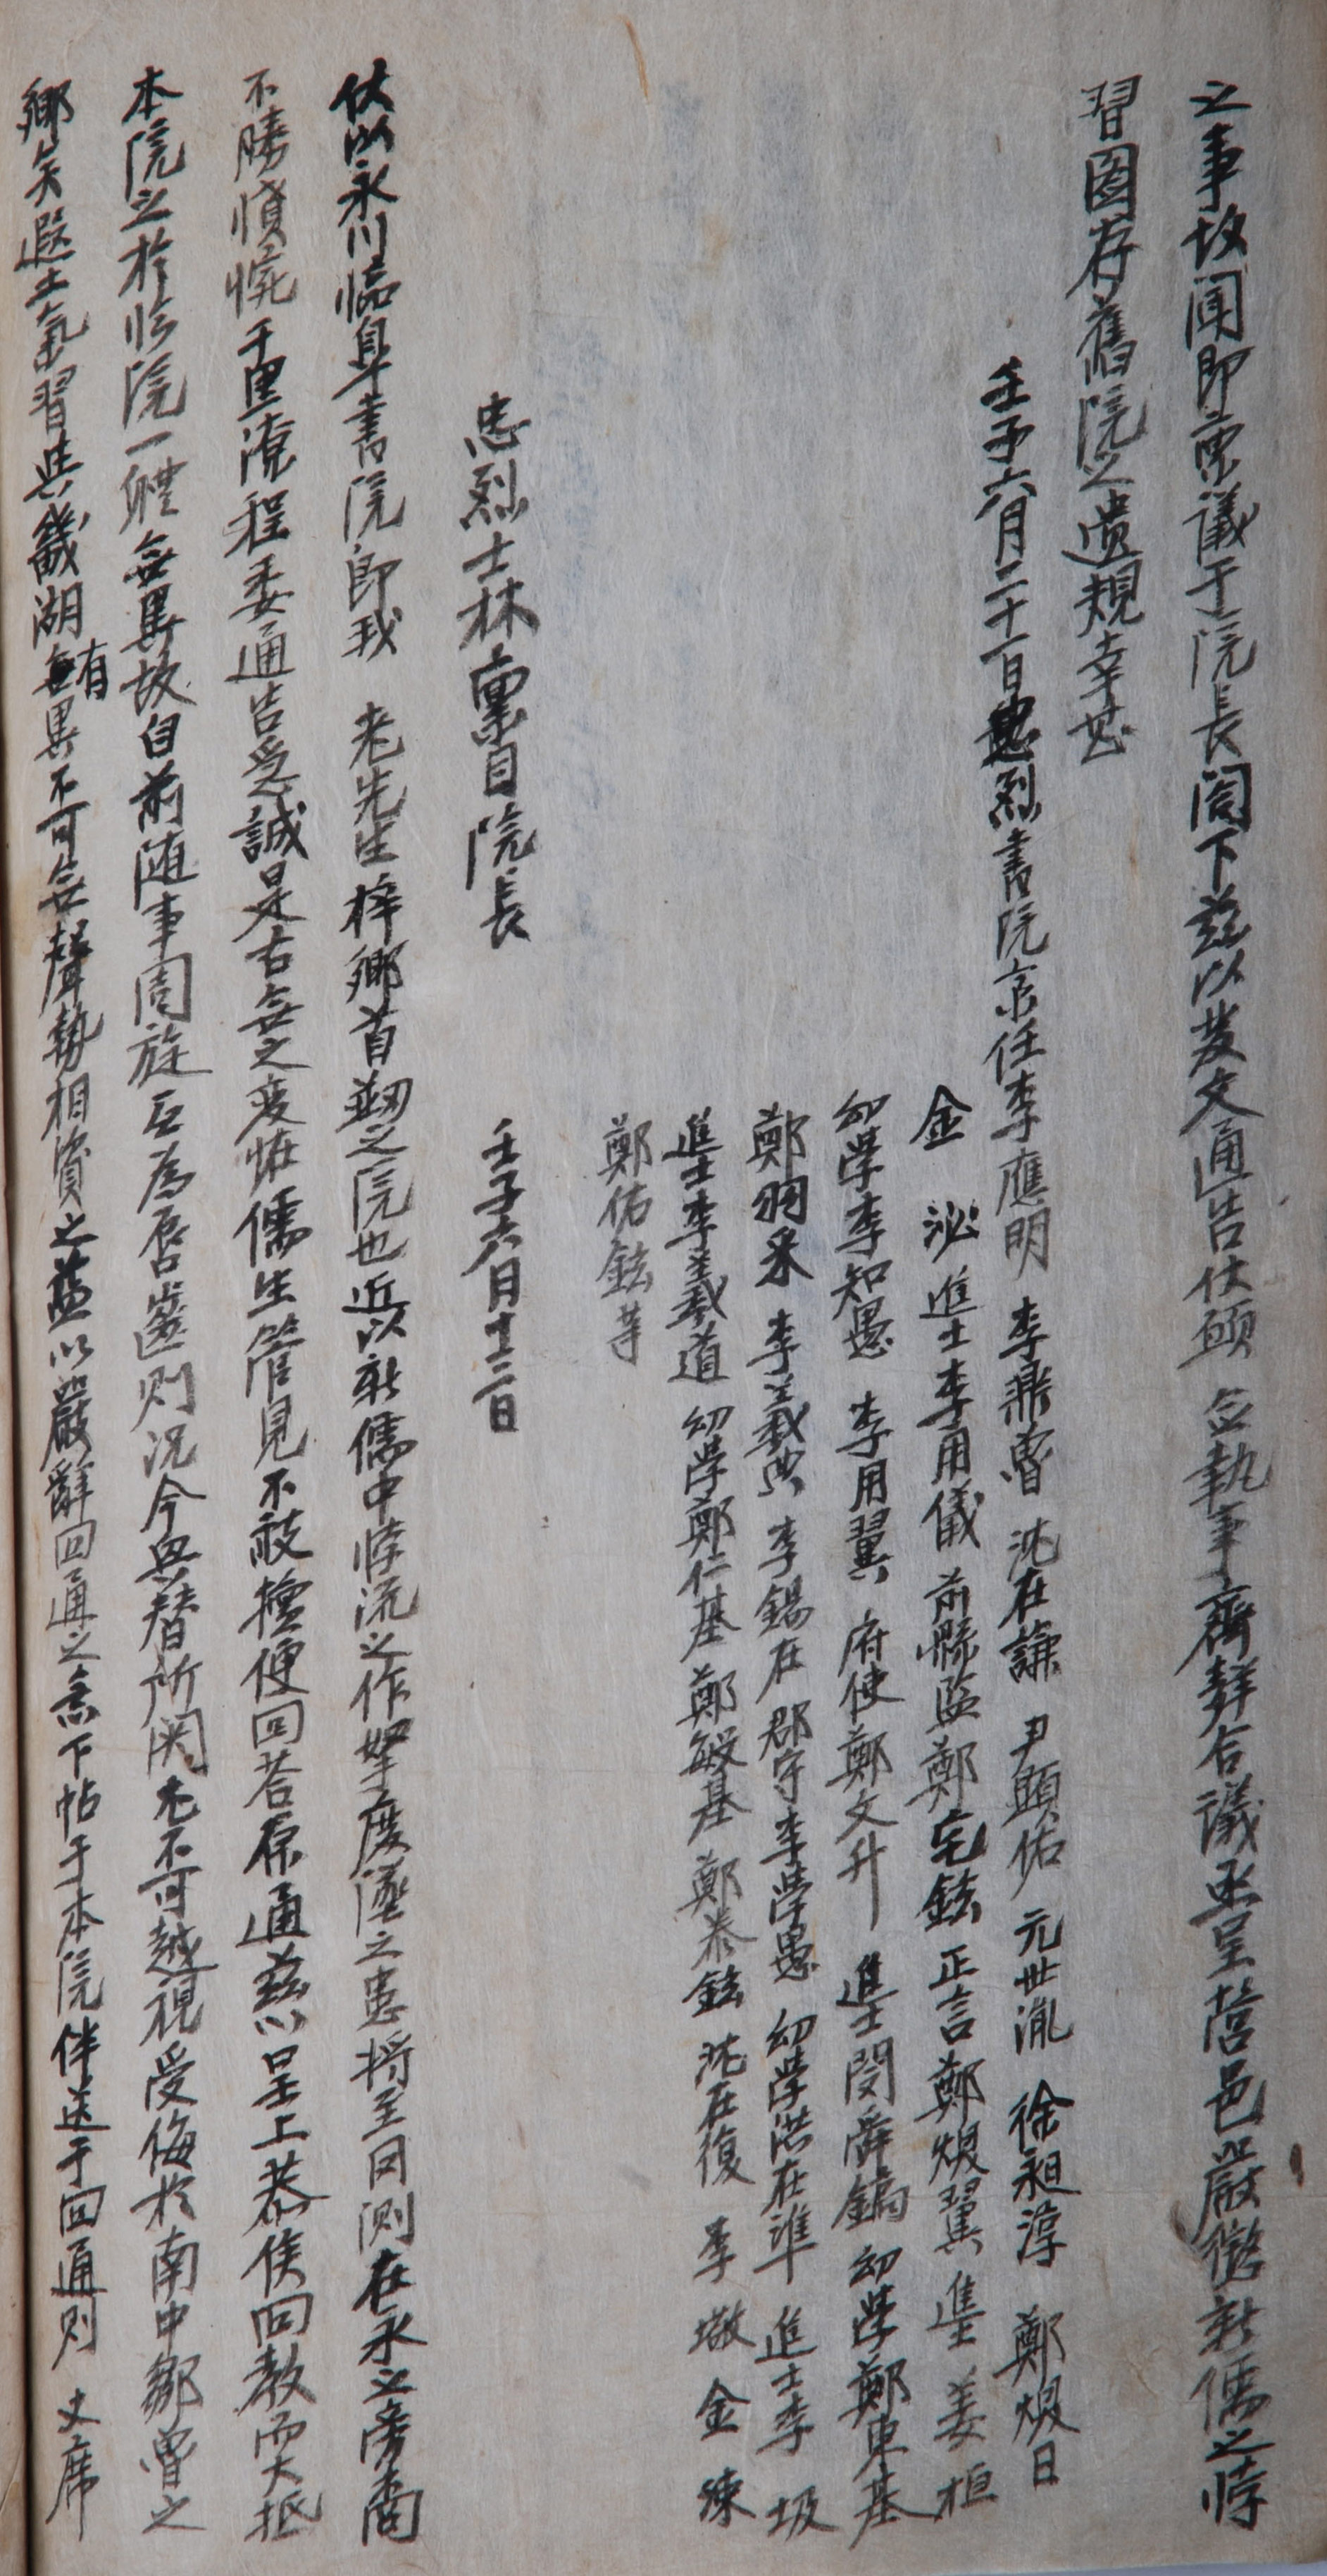 之事故闻卽稟議于院長閤下玆以发文通告伏願 僉執事齊聲合議亟呈營邑嚴懲新儒之悖
習圖存舊院之遺規幸甚
壬子六月二十一日忠烈書院京任李應明 李鼎會 沈在謙 尹顯佑 元世胤 徐昶淳 鄭煥日
金 泌 進士李用儀 前縣監鄭宅鉉 正言鄭煥翼 進士姜 桓
幼學李知愚 李用翼 府使鄭文升 進士閔舜鎬 幼學鄭東基
鄭翊采 李義典 李錫在 郡守李學愚 幼學洪在準 進士李 圾
進士李義道 幼學鄭仁基 鄭敏基 鄭泰鉉 沈在復 李 墩 金 涑
鄭佑鉉等
忠烈士林稟目院長 壬子六月十二日
伏以永川臨皐書院卽我 老先生梓鄕首刱之院也近以新儒中悖流之作拏廢墜之患將至罔測在永之旁裔
不勝憤惋千里遠程委通告急誠是古無之変怪儒生管見不敢擅便回答原通玆以呈上恭俟回敎而大抵
本院之於臨院一軆無異故自前随事周旋互為唇齒則况今興替所関尤不可越視受侮於南中鄒魯之
鄕矣遐土氣習與畿湖有異不可無聲勢相資之益以嚴辭回通之意下帖于本院伴送于回通则 丈席